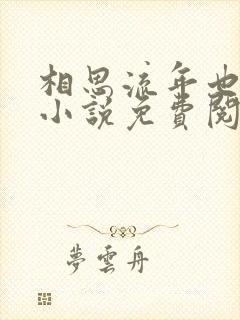 相思流年也
小說免費閱
夢雲舟